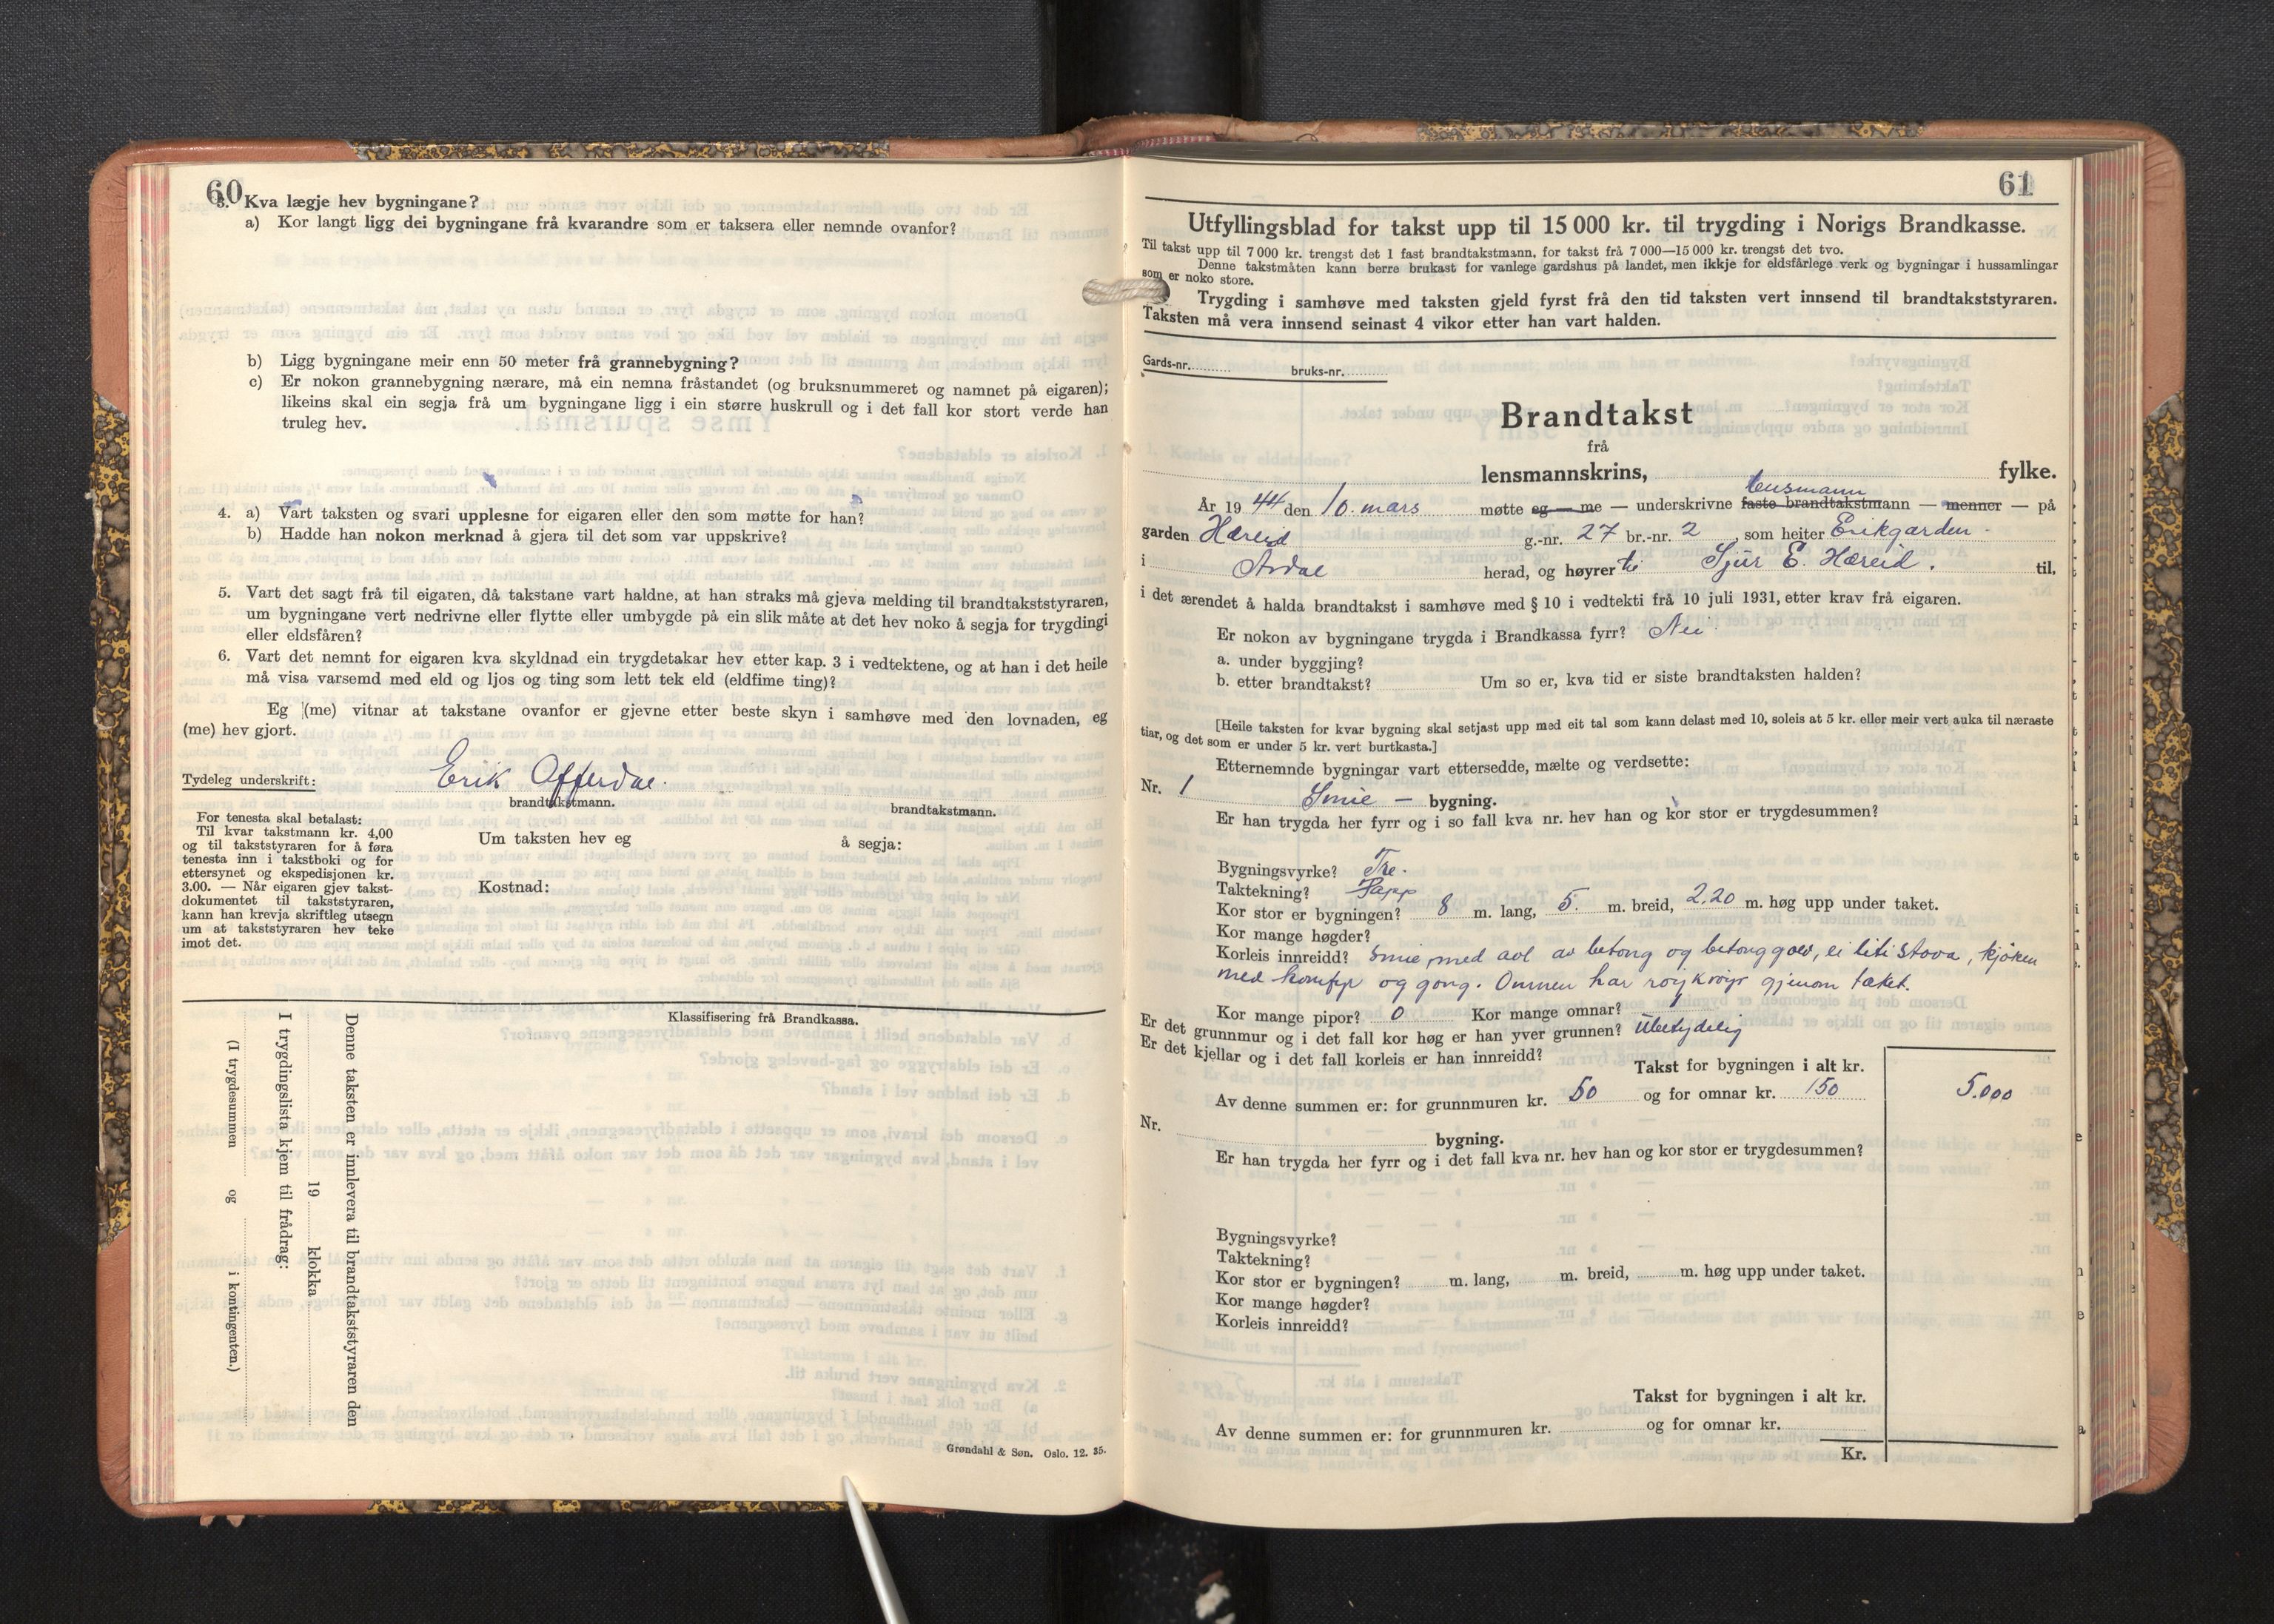 60
3. Kva lægje hev bygningane?
a) Kor langt ligg dei bygningane frå kvarandre som er taksera eller nemnde ovanfor?
b) Ligg bygningane meir enn 50 meter frå grannebygning?
c) Er nokon grannebygning nærare, må ein nemna fråstandet (og bruksnummeret og namnet på eigaren);
likeins skal ein segja frå um bygningane ligg i ein større huskrull og i det fall kor stort verde han
truleg hev.
4. a) Vart taksten og svari upplesne for eigaren eller den som møtte for han?
b) Hadde han nokon merknad å gjera til det som var uppskrive?
5. Vart det sagt frå til eigaren, då takstane vart haldne, at han straks må gjeva melding til brandtakststyraren,
um bygningane vert nedrivne eller flytte eller umbygde på ein slik måte at det hev noko å segja for trygdingi
eller eldsfåren?
6. Vart det nemnt for eigaren kva skyldnad ein trygdetakar hev etter kap. 3 i vedtektene, og at han i det heile
må visa varsemd med eld og ljos og ting som lett tek eld (eldfime ting)?
Eg (me) vitnar at takstane ovanfor er gjevne etter beste skyn i samhøve med den lovnaden, eg
(me) hev gjort.
Tydeleg underskrift: Erik Offerdal.
brandtakstmann. brandtakstmann.
For tenesta skal betalast:
Til kvar takstmann kr. 4,00
og til takststyraren for å føra
tenesta inn i takstboki og for
ettersynet og ekspedisjonen kr.
3.00. — Når eigaren gjev takst-
dokumentet til takststyraren,
kann han krevja skriftleg utsegn
um at takststyraren hev teke
imot det.
Um taksten hev eg å segja:
Kostnad:
Klassifisering frå Brandkassa.
Denne taksten er innlevera til brandtakststyraren den
19 klokka
I trygdingslista kjem til frådrag:
(I trygdesummen og i kontingenten.)
Grøndahl & Søn. Oslo. 12. 35.
61
Utfyllingsblad for takst upp til 15 000 kr. til trygding i Norigs Brandkasse.
Til takst upp til 7 000 kr. trengst det 1 fast brandtakstmann, for takst frå 7 000—15 000 kr. trengst det tvo.
Denne takstmåten kann berre brukast for vanlege gardshus på landet, men ikkje for eldsfårlege verk og bygningar i hussamlingar
som er noko store.
Trygding i samhøve med taksten gjeld fyrst frå den tid taksten vert innsend til brandtakststyraren.
Taksten må vera innsend seinast 4 vikor etter han vart halden.
Gards-nr. bruks-nr.
Brandtakst
frå
lensmannskrins, fylke.
lensmann
År 1944 den 10. mars møtte eg — me — underskrivne faste brandtakstmann — menner — på
garden Hæreid g.-nr. 27 br.-nr. 2, som heiter Erikgarden.
i Årdal herad, og høyrer til Sjur E. Hæreid. til,
i det ærendet å halda brandtakst i samhøve med § 10 i vedtekti frå 10 juli 1931, etter krav frå eigaren.
Er nokon av bygningane trygda i Brandkassa fyrr? Nei
a. under byggjing?
b. etter brandtakst? Um so er, kva tid er siste brandtaksten halden?
[Heile taksten for kvar bygning skal setjast upp med eit tal som kann delast med 10, soleis at 5 kr. eller meir vert auka til næraste
tiar, og det som er under 5 kr. vert burtkasta.]
Etternemnde bygningar vart ettersedde, mælte og verdsette:
Nr. 1 Smie — bygning.
Er han trygda her fyrr og i so fall kva nr. hev han og kor stor er trygdesummen?
Bygningsvyrke? Tre.
Taktekning? Papp
Kor stor er bygningen? 8 m. lang, 5. m. breid, 2.20 m. høg upp under taket.
Kor mange høgder?
Korleis innreidd? Smie, med avl av betong og betonggolv, ei liti stova, kjøken
med komfyr og gong. Omnen har røykrøyr gjenom taket.
Kor mange pipor? 0 Kor mange omnar?
Er det grunnmur og i det fall kor høg er han yver grunnen? Ubetydelig
Er det kjellar og i det fall korleis er han innreidd?
Takst for bygningen i alt kr.
Av denne summen er: for grunnmuren kr. 50 og for omnar kr. 150 5.000
Nr. bygning.
Er han trygda her fyrr og i det fall kva nr. hev han og kor stor er trygdesummen?
Bygningsvyrke?
Taktekning?
Kor stor er bygningen? m. lang, m. breid, m. høg upp under taket.
Kor mange høgder?
Korleis innreidd?
Takst for bygningen i alt kr.
Av denne summen er: for grunnmuren kr. og for omnar kr.
Kr.